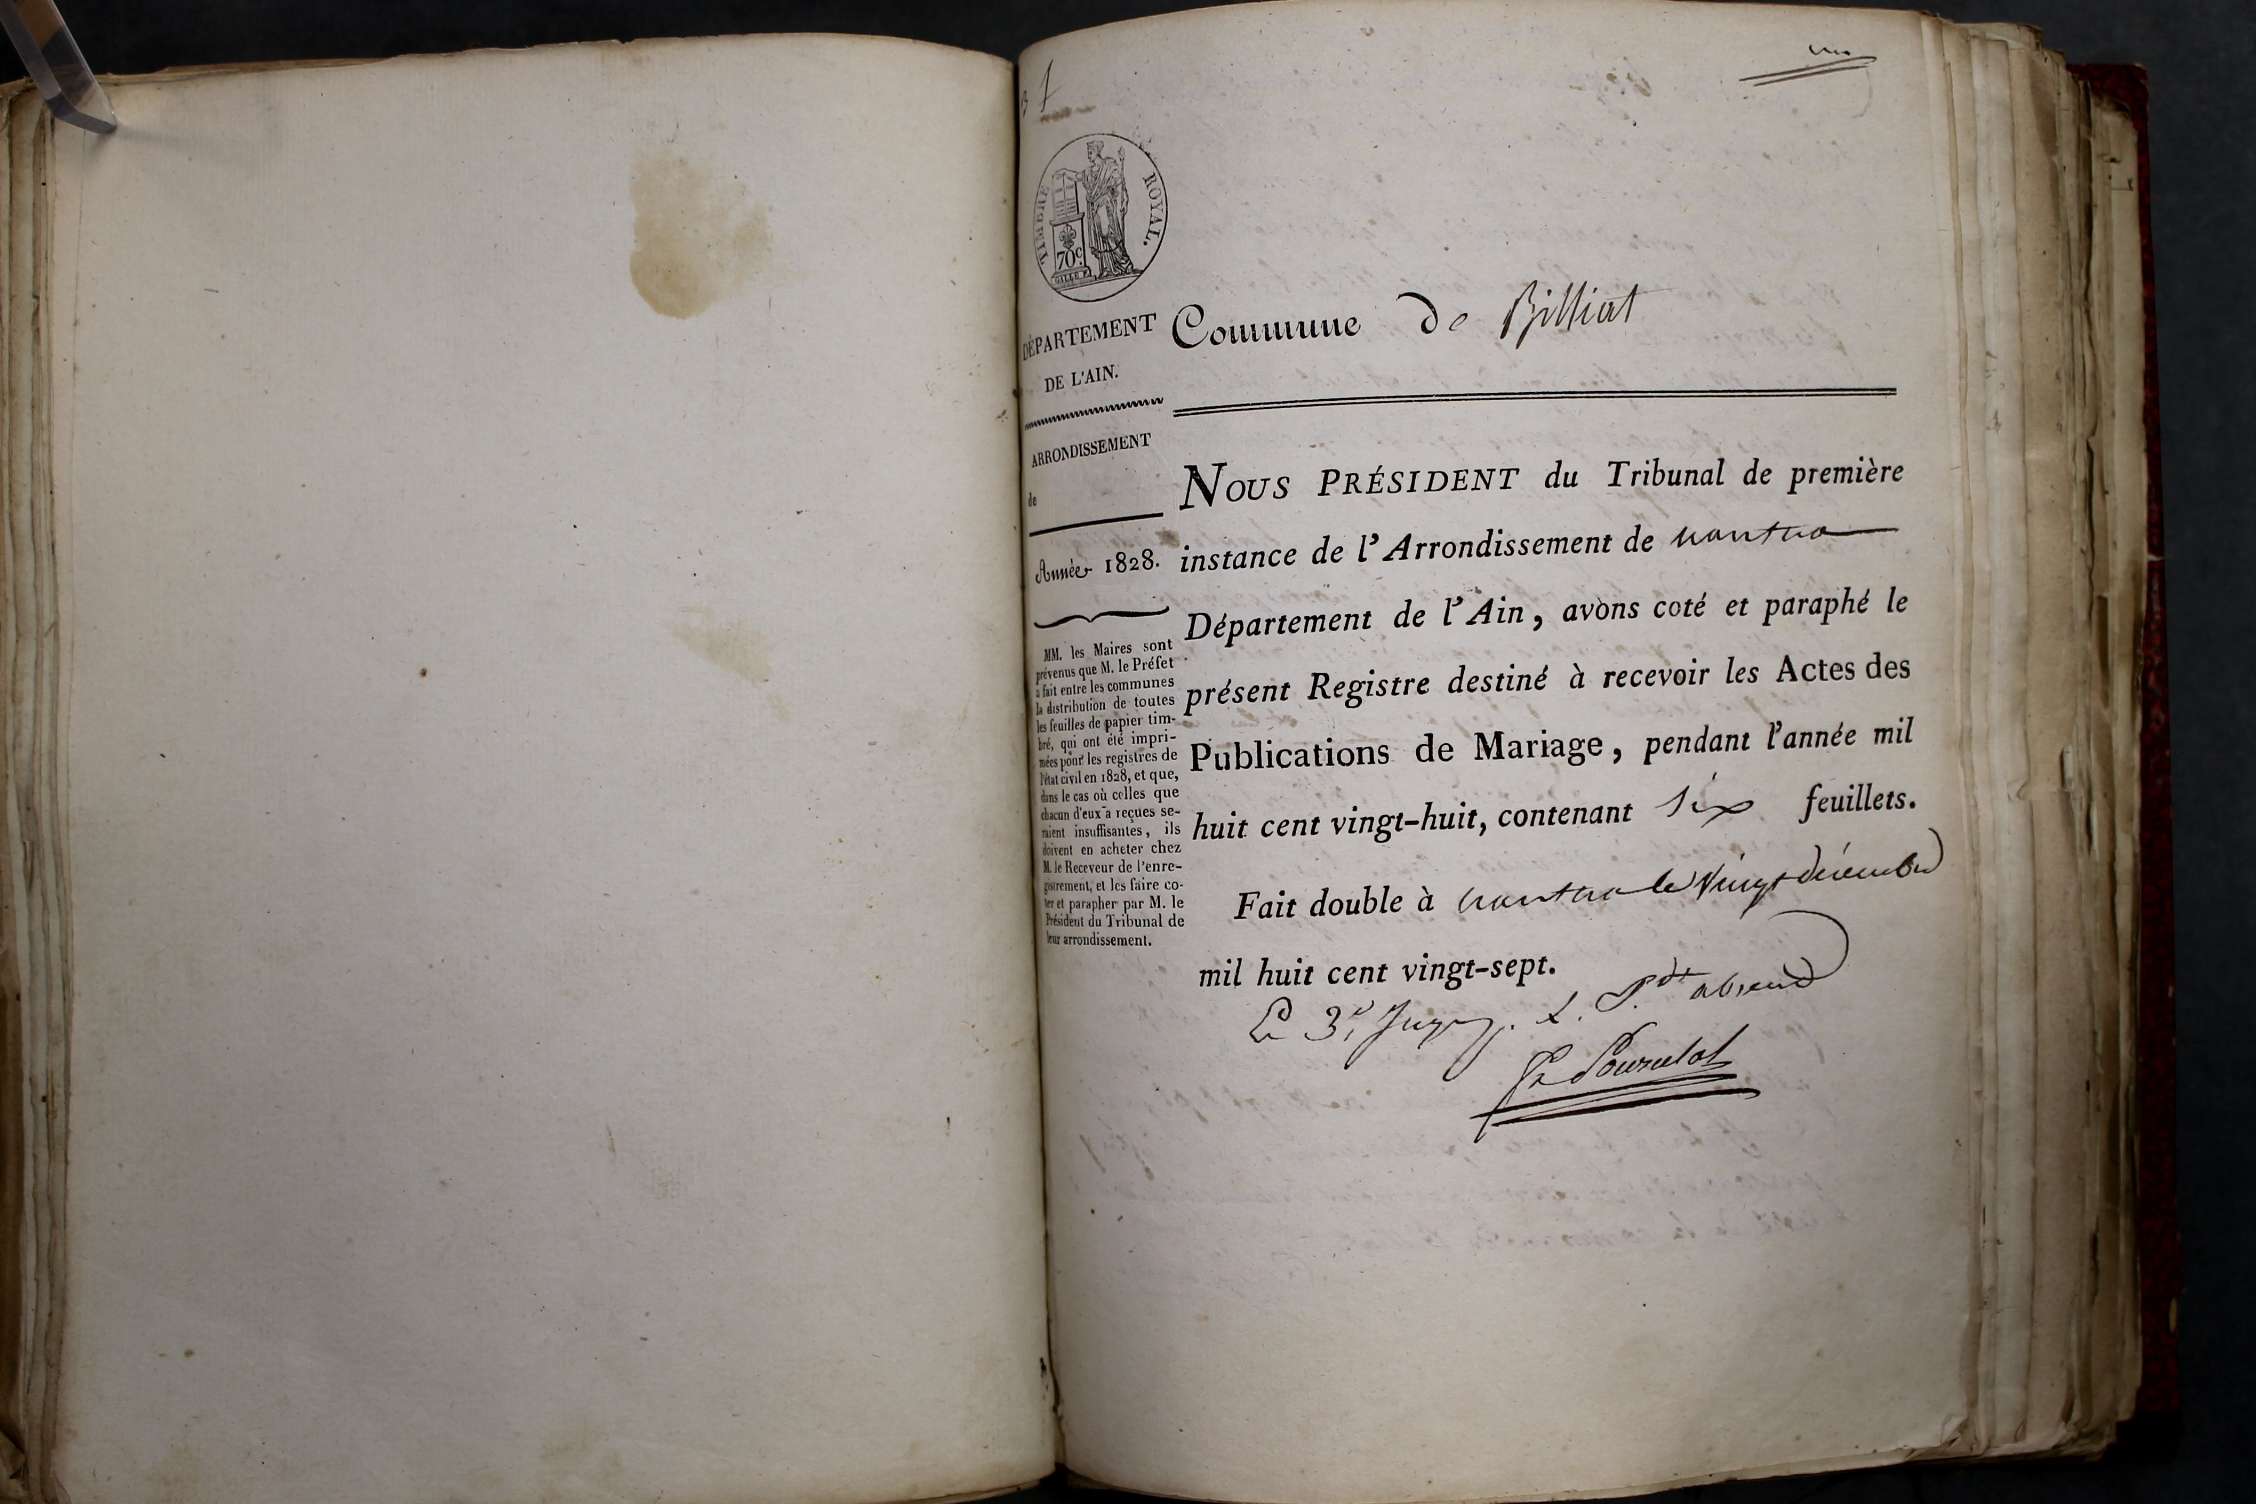 1
un
TIMBRE ROYAL.
70 c.
DÉPARTEMENT
DE L'AIN.
ARRONDISSEMENT
de
Année 1828.
MM. les Maires sont
prévenus que M. le Préfet
a fait entre les communes
la distribution de toutes
les feuilles de papier tim-
bré, qui ont été impri-
mées pour les registres de
l'état civil en 1828, et que,
dans le cas où celles que
chacun d'eux a reçues se-
raient insuffisantes, ils
doivent en acheter chez
M. le Receveur de l'enre-
gistrement, et les faire co-
ter et parapher par M. le
Président du Tribunal de
leur arrondissement.
Commune de Billiat
NOUS PRÉSIDENT du Tribunal de première
instance de l'Arrondissement de nantua
Département de l'Ain, avons coté et paraphé le
présent Registre destiné à recevoir les Actes des
Publications de Mariage, pendant l'année mil
huit cent vingt-huit, contenant six feuillets.
Fait double à nantua le vingt décembre
mil huit cent vingt-sept.
Le 3e Juge, L. Pdt absend